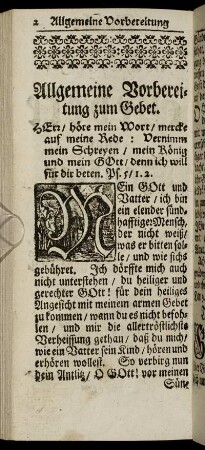 2 Allgemeine Vorbereitung
Allgemeine Vorberei-
tung zum Gebet.
HErr / höre mein Wort / mercke
auf meine Rede : Vernimm
mein Schreyen / mein König
und mein GOtt / denn ich will
für dir beten. Ps. 5/1.2.
MEin GOtt und
Vatter / ich bin
ein elender sünd-
hafftiger Mensch,
der nicht weiß/
was er bitten sol-
le / und wie sichs
gebühret. Ich dörffte mich auch
nicht unterstehen / du heiliger und
gerechter GOtt! für dein heiliges
Angesicht mit meinem armen Gebet
zu kommen / wann du es nicht befoh-
len / und mir die allertröstlichste
Verheissung gethan / daß du mich/
wie ein Vatter sein Kind / hören und
erhören wollest. So verbirg nun
dein Antlitz / O GOtt! vor meinen
Sün-